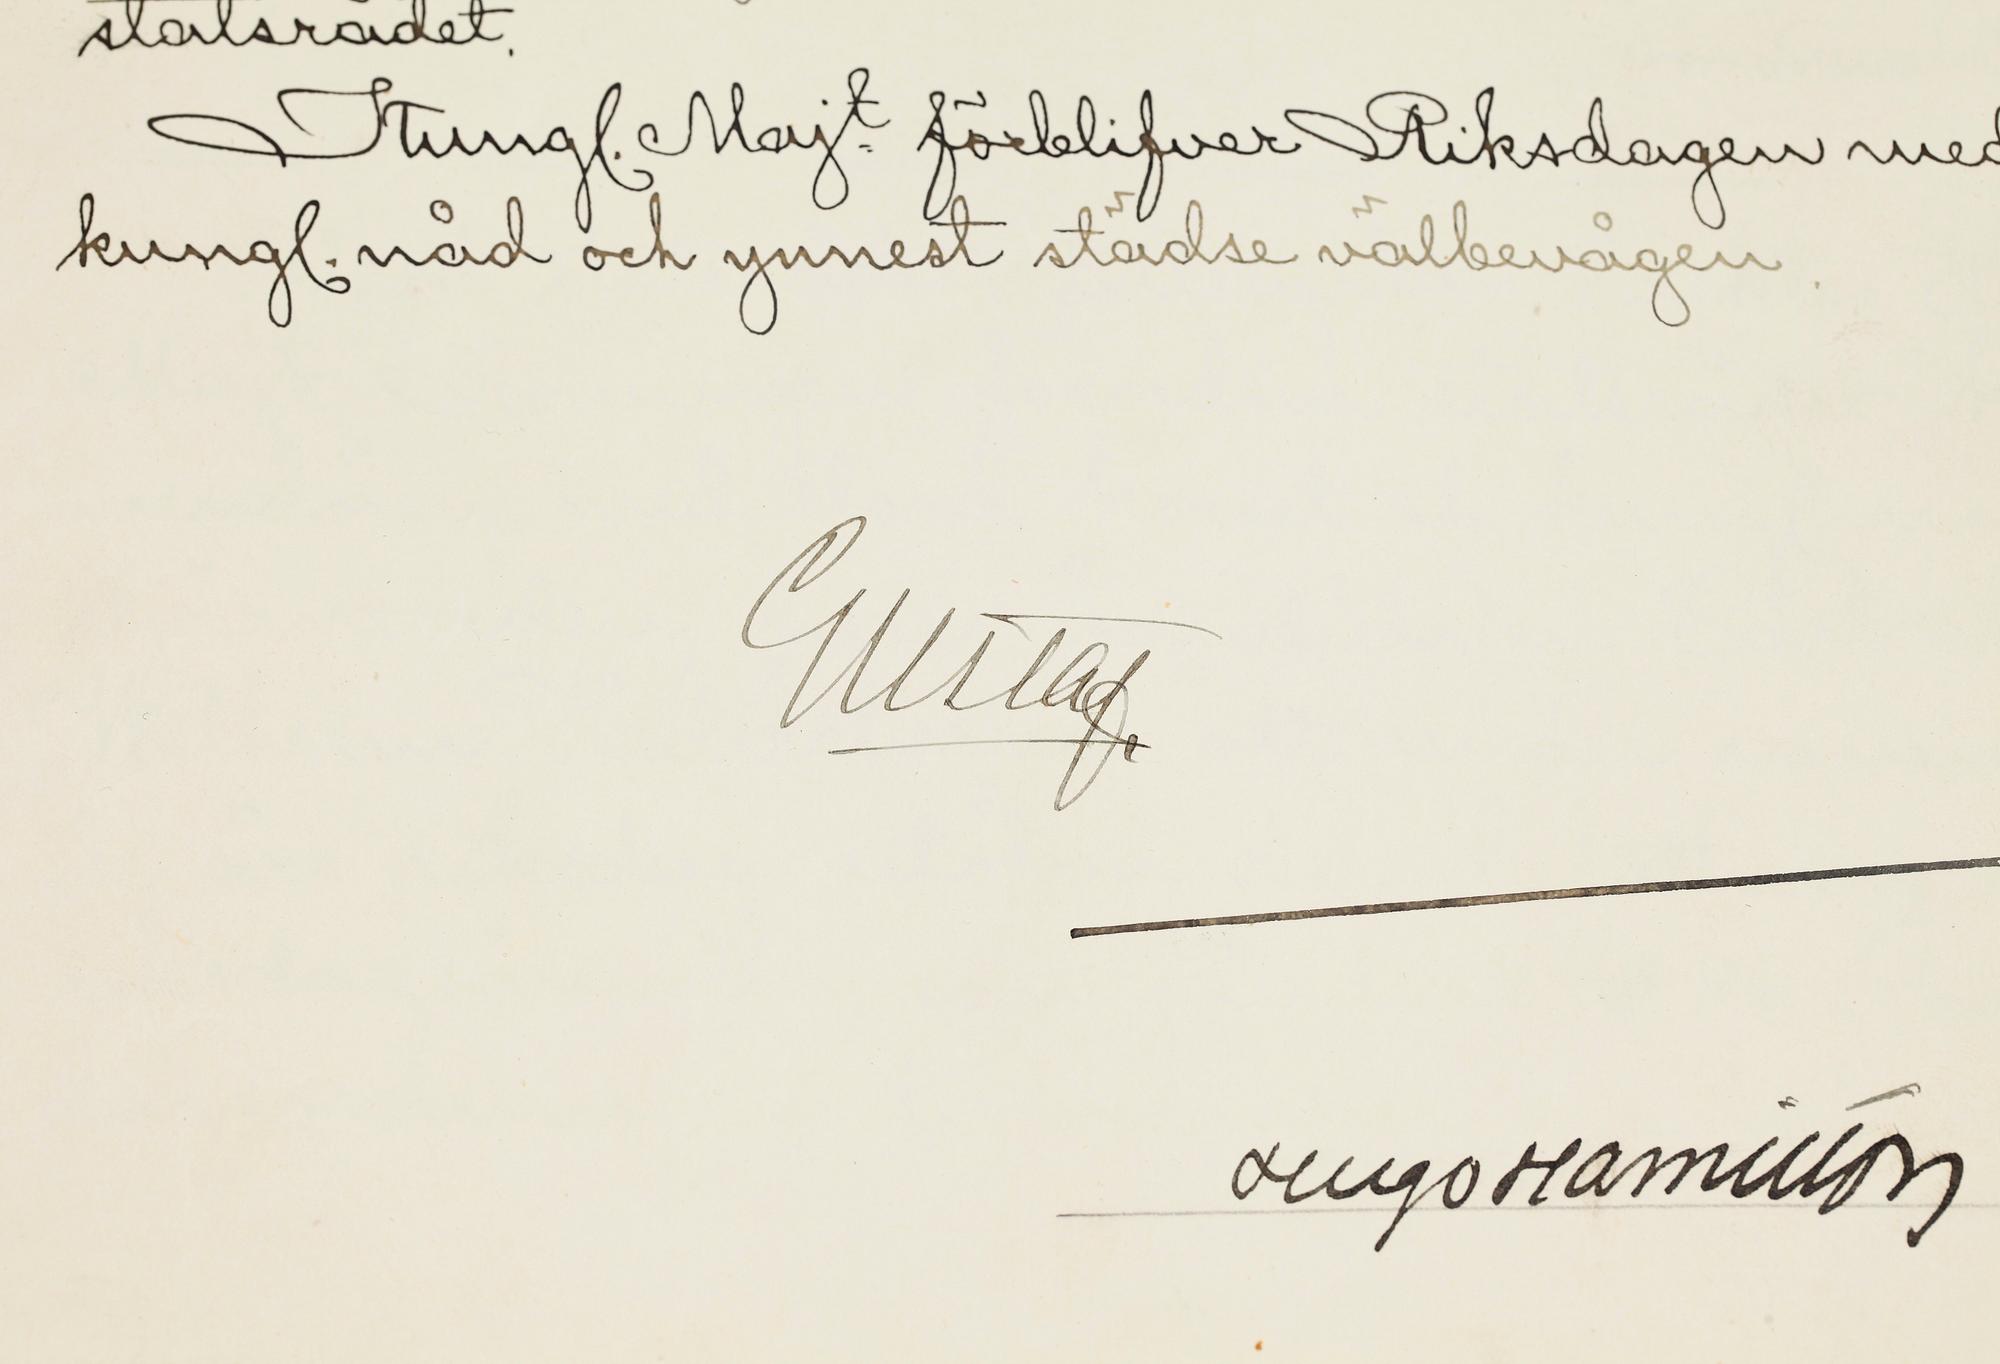 statsrådet.
Kungl. Majt förblifver Riksdagen med
kungl. nåd och ynnest städse välbevågen.
Gustaf.
Hugo Hamilton